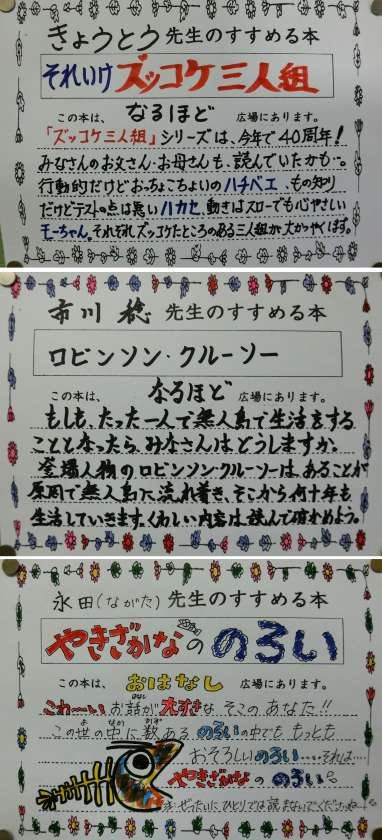 きょうとう 先生のすすめる本
それいけズッコケ三人組
この本は、 なるほど 広場にあります。
「ズッコケ三人組」シリーズは、今年で40周年!
みなさんのお父さん・お母さんも、読んでいたかも…。
行動的だけどおっちょこちょいのハチベエ、もの知り
だけどテストの点は悪いハカセ、動きはスローでも心やさしい
モーちゃん。それぞれズッコケたところのある三人組が大かつやくします。
市川 稔 先生のすすめる本
ロビンソン・クルーソー
この本は、 なるほど 広場にあります。
もしも、たった一人で無人島で生活をする
こととなったら、みなさんはどうしますか。
登場人物のロビンソン・クルーソーは、あることが
原因で無人島に流れ着き、そこから何十年も
生活していきます。くわしい内容は読んで確かめよう。
永田(ながた) 先生のすすめる本
やきざかなののろい
この本は、 おはなし 広場にあります。
こわ〜いお話が大すきな そこの あなた!!
この世の中に数ある のろいの中でも もっとも
おそろしいのろい……それは…
やきざかな の のろい
ぜったいに、ひとりでは読まないでくださいね